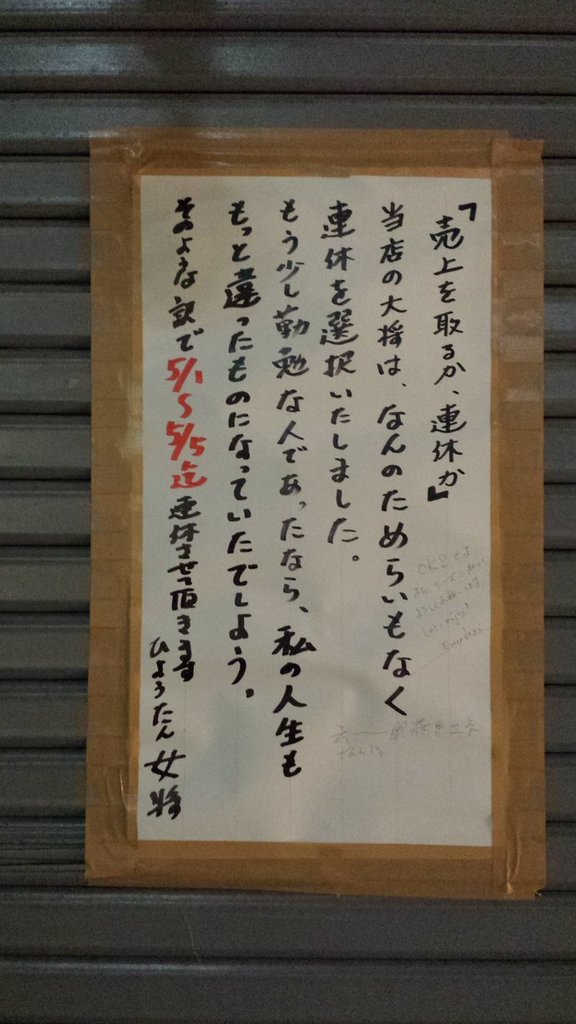 「売上を取るか、連休か」
当店の大将は、なんのためらいもなく
連休を選択いたしました。
もう少し勤勉な人であったなら、私の人生も
もっと違ったものになっていたでしょう。
そのような訳で5/1〜5/5迄連休させて頂きます
ひょうたん 女将